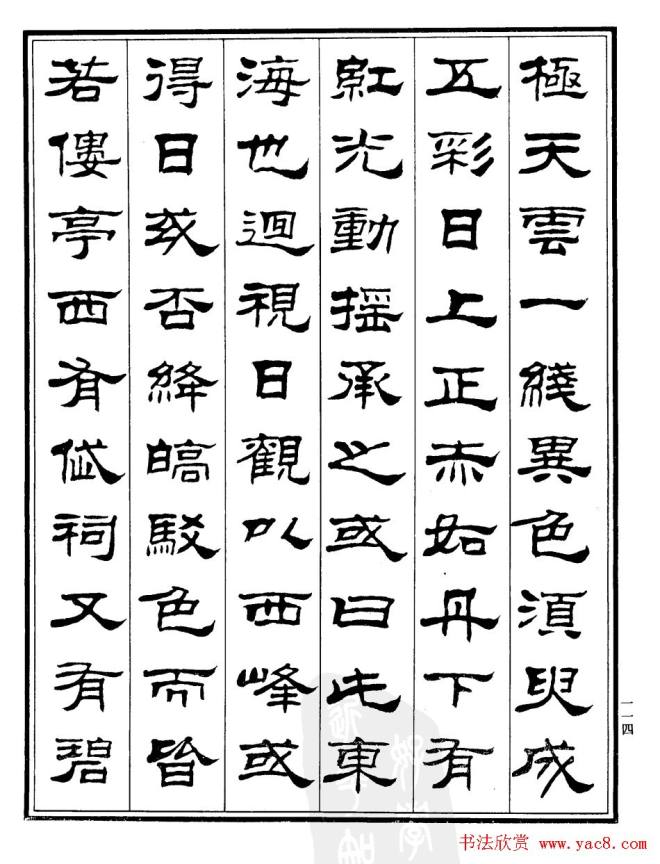 極天雲一綫異色須臾成
五彩日上正赤如丹下有
紅光動揺承之或曰此東
海也迴視日觀以西峰或
得日或否絳皜駁色而皆
若僂亭西有岱祠又有碧
一一四
书法欣赏 www.yac8.com